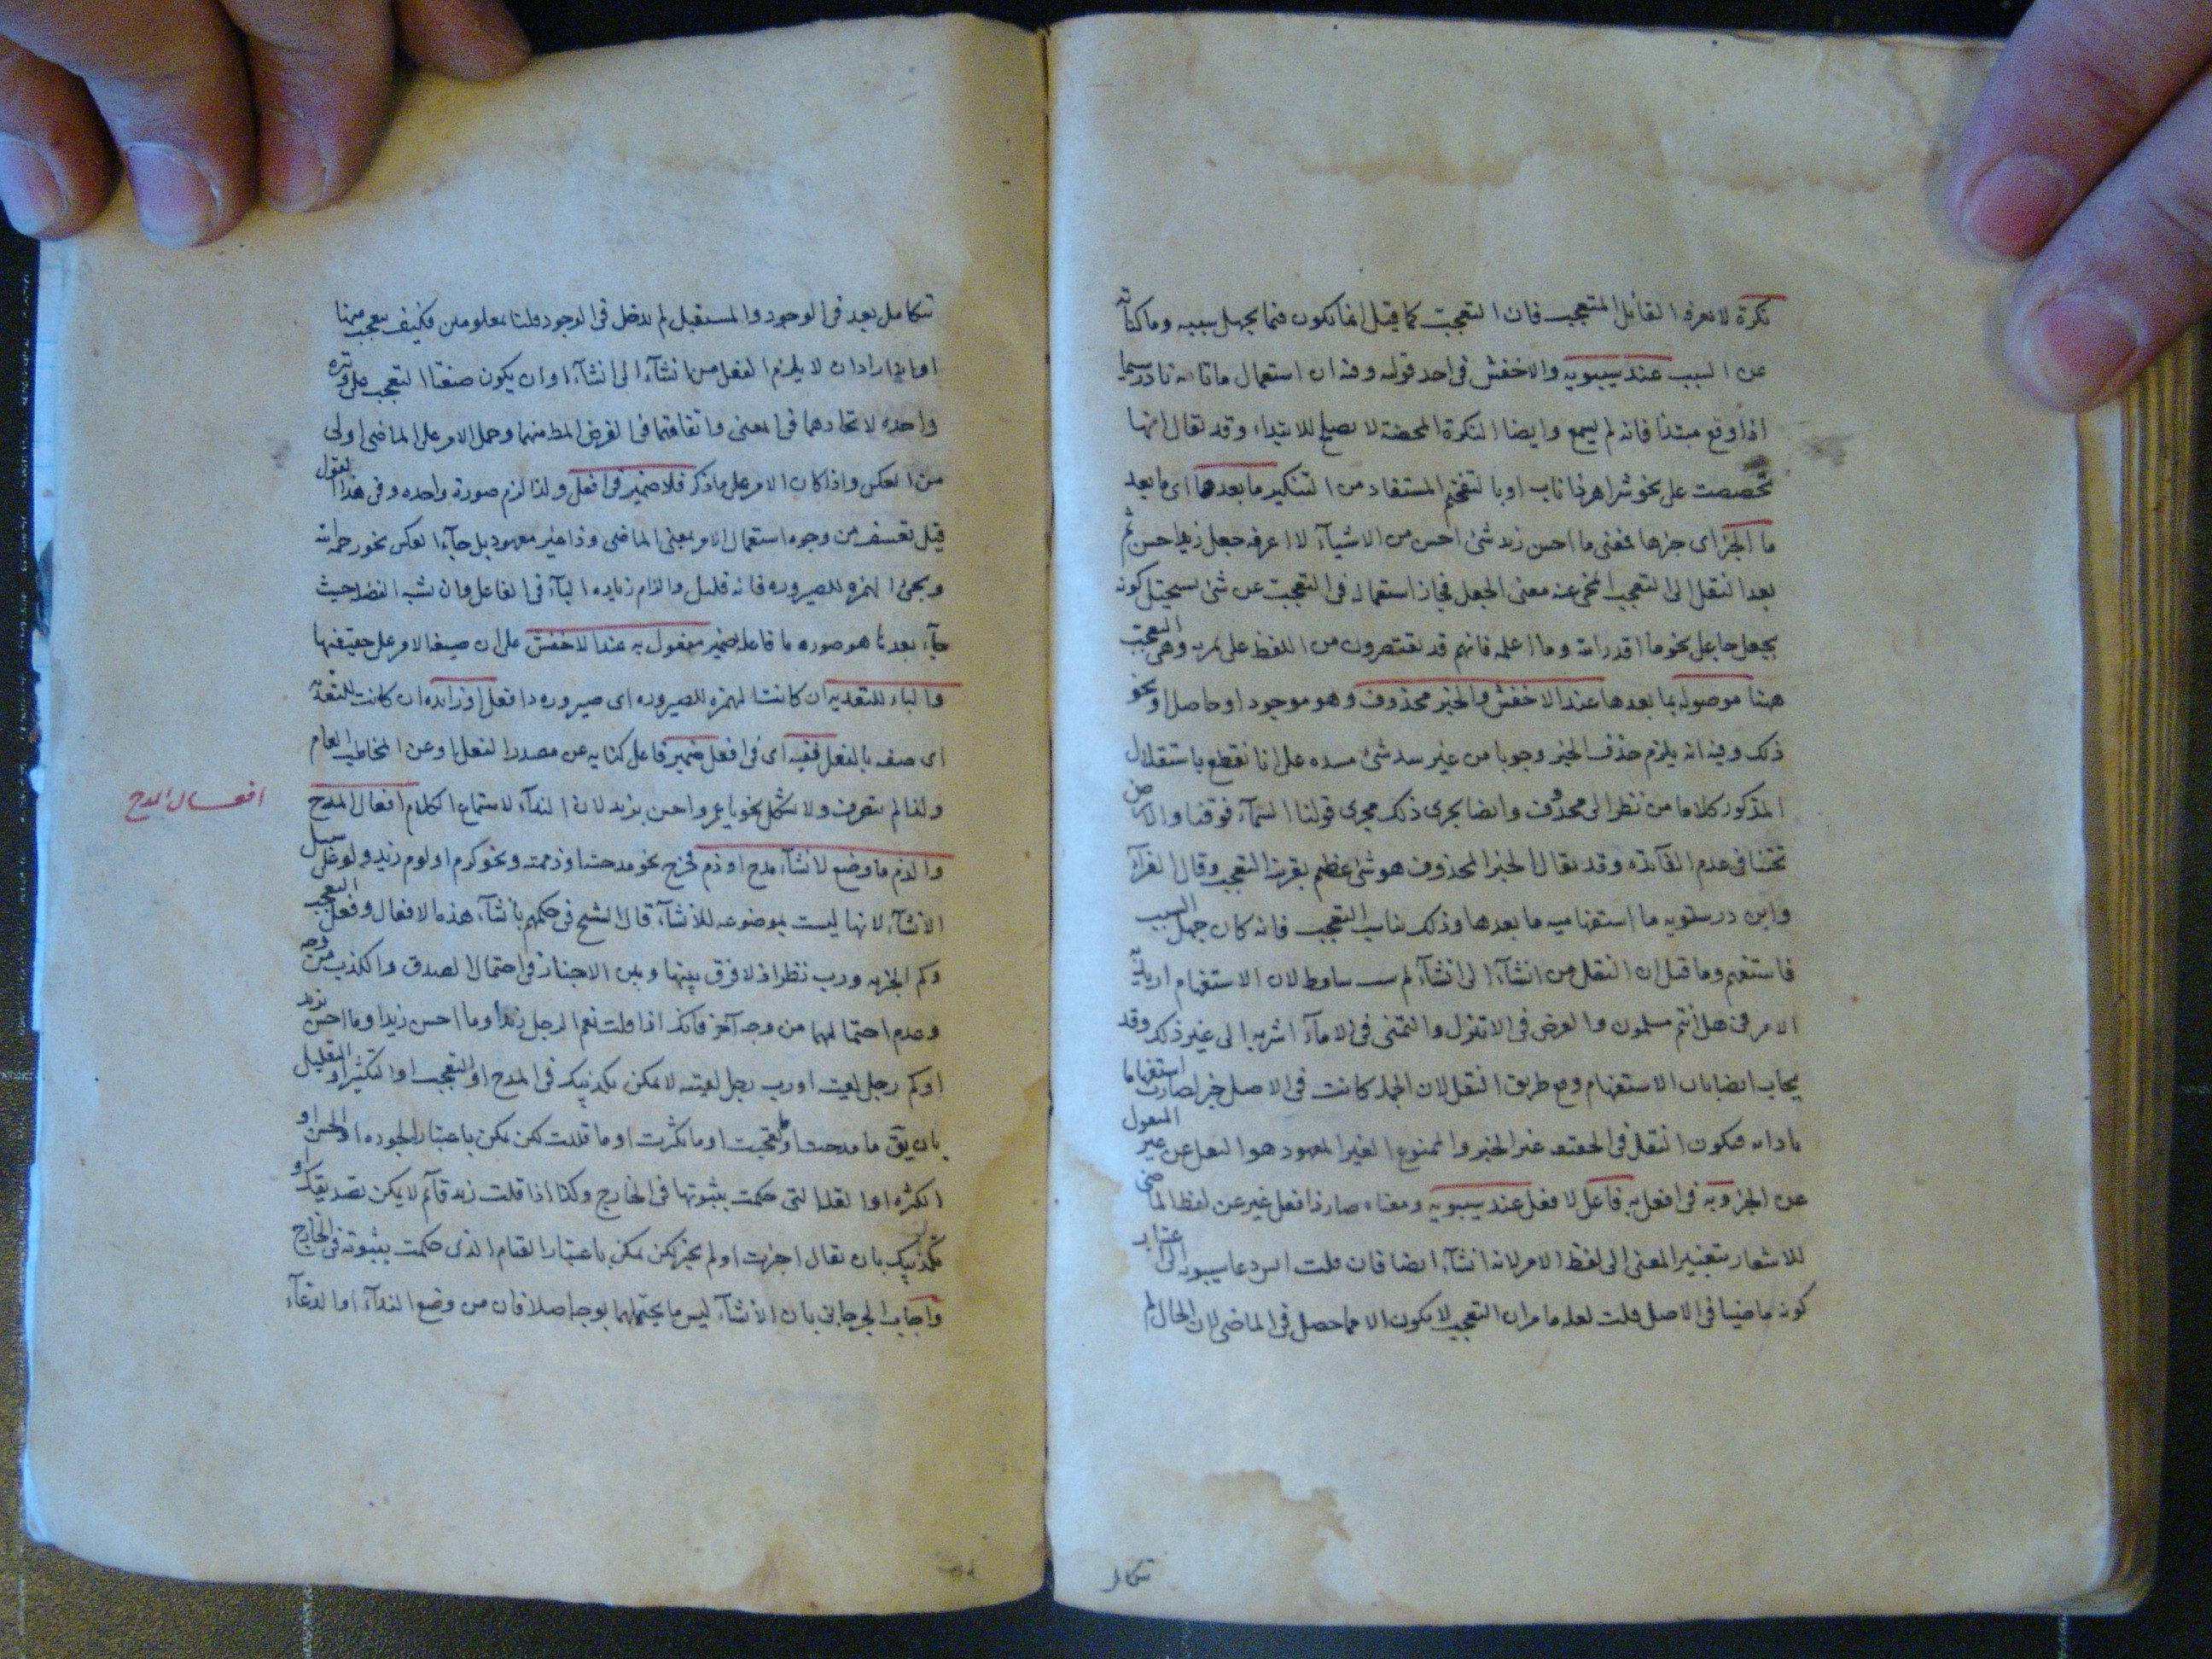 نكرة لا يعرفه القائل المتعجب فان التعجب كما قيل انما يكون فيما يجهل سببه وما كناية
عن السبب عند سيبويه والاخفش فى احد قوليه وفيه ان استعمال ما تامة نادر سيما
اذا وقع مبتدا فانه لم يسمع وايضا النكرة المحضة لا يصلح للابتداء وقد يقال انها
تخصصت على نحو شر اهر ذا ناب او بالتفخيم المستفاد من التنكير ما بعدها اى ما بعد
ما الخبر اى خبرها فمعنى ما احسن زيد شئ احسن من الاشياء لا اعرفه جعل زيدا حسن ثم
بعد النقل الى التعجب انمحى عنه معنى الجعل فجاز استعماله فى التعجب عن شئ يستحيل كونه
بجعل جاعل نحو ما اقدر الله وما اعلمه فانهم قد يقتصرون من اللفظ على ثمرته وهى التعجب
ههنا موصولة بما بعدها عند الاخفش والخبر محذوف وهو موجود او حاصل او نحو
ذلك وفيه انه يلزم حذف الخبر وجوبا من غير سد شئ مسده على انا نقطع باستقلال
المذكور كلاما من نظر الى محذوف وايضا يجرى ذلك مجرى قولنا السماء فوقنا والارض
تحتنا فى عدم الفائدة وقد يقال الخبر المحذوف هو شئ عظيم بقرينة التعجب وقال الفراء
وابن درستويه ما استفهامية ما بعدها وذلك يناسب التعجب فانه كان جهل السبب
فاستفهم وما قيل ان النقل من انشاء الى انشاء لم ساقط لان الاستفهام اريد به
الامر فى هل انتم مسلمون والعرض فى الا تنزل والتمنى فى الا ماء اشربه الى غير ذلك وقد
يجاب ايضا بان الاستفهام وقع طريق النقل لان الجملة كانت فى الاصل خبرا صارت استفهاما
باداته فيكون النقل فى الحقيقة عن الخبر والممنوع الغير المعهود هو النقل عن غير المنقول
عن الخبر وبه فى افعل به فاعل لا فعل عند سيبويه ومعناه صار ذا فعل غير عن لفظ الماضى
للاشعار بتغيير المعنى الى لفظ الامر لانه انشاء ايضا فان قلت دعا سيبويه الى اعتبار
كونه ماضيا فى الاصل قلت لعله ما مر ان التعجب لا يكون الا مما حصل فى الماضى لان الحال لم
تتكامل
تتكامل بعد فى الوجود والمستقبل لم يدخل فى الوجود فليتا بمعلومين فكيف يتعجب منها
او انه اراد ان لا يلزم النقل من انشاء الى انشاء او ان يكون صيغتا التعجب على وتيرة
واحدة لاتحادهما فى المعنى واتفاقهما فى الغرض المط منهما وحمل الامر على الماضى اولى
من العكس واذا كان الامر على ما ذكر فلا ضمير فى افعل ولذا لزم صورة واحدة وفى هذا القول
قيل تعسف من وجوه استعمال الامر بمعنى الماضى وذا غير معهود بل جاء العكس نحو رحمه الله
ومجئ الهمزة للصيرورة فانه قليل والزام زيادة الباء فى الفاعل وان نشبه الفضلة حيث
جاء بعد ما هو صورة ما فاعله ضمير مفعول به عند الاخفش على ان صيغة الامر على حقيقتها
والباء للتعدية ان كانت الهمزة للصيرورة اى صيروره ذا فعل او زائدة ان كانت للتعدية
اى صفه بالفعل ففيه اى فى افعل ضمير فاعل كناية عن مصدر الفعل او عن المخاطب العام
ولذا لم يتصرف ولا يشكل بنحو يا عمرو احسن بزيد لان النداء لاستماع الكلام افعال المدح
افعال المدح
والذم ما وضع لانشاء مدح او ذم فخرج نحو مدحته وذممته ونحو كرم او لوم زيد ولو على سبيل
الانشاء لانها ليست بموضوعة للانشاء قال الشيخ فى حكمهم بانشاء هذه الافعال وفعل التعجب
وكم الخبرية ورب نظر اذ لا فرق بينها وبين الاخبار فى احتمال الصدق والكذب من وجه
وعدم احتمالهما من وجه آخر فانك اذا قلت نعم الرجل زيد او ما احسن زيدا وما احسن بزيد
او كم رجل لقيته او رب رجل لقيته لا يمكن تكذيبك فى المدح او التعجب او التكثير او التقليل
بان يق ما مدحت او تعجبت او ما كثرت او ما قللت لكن يمكن باعتبار الجودة او الحسن او
الكثرة او القلة التى حكمت بثبوتها فى الخارج وكذا اذا قلت زيد قائم لا يمكن تصديقك و
تكذيبك بان يقال اخبرت او لم تخبر لكن يمكن باعتبار القيام الذى حكمت بثبوته فى الخارج
واجاب الجرجانى بان الانشاء ليس ما يحتملهما بوجه اصلا فان من وضع النداء او الدعاء